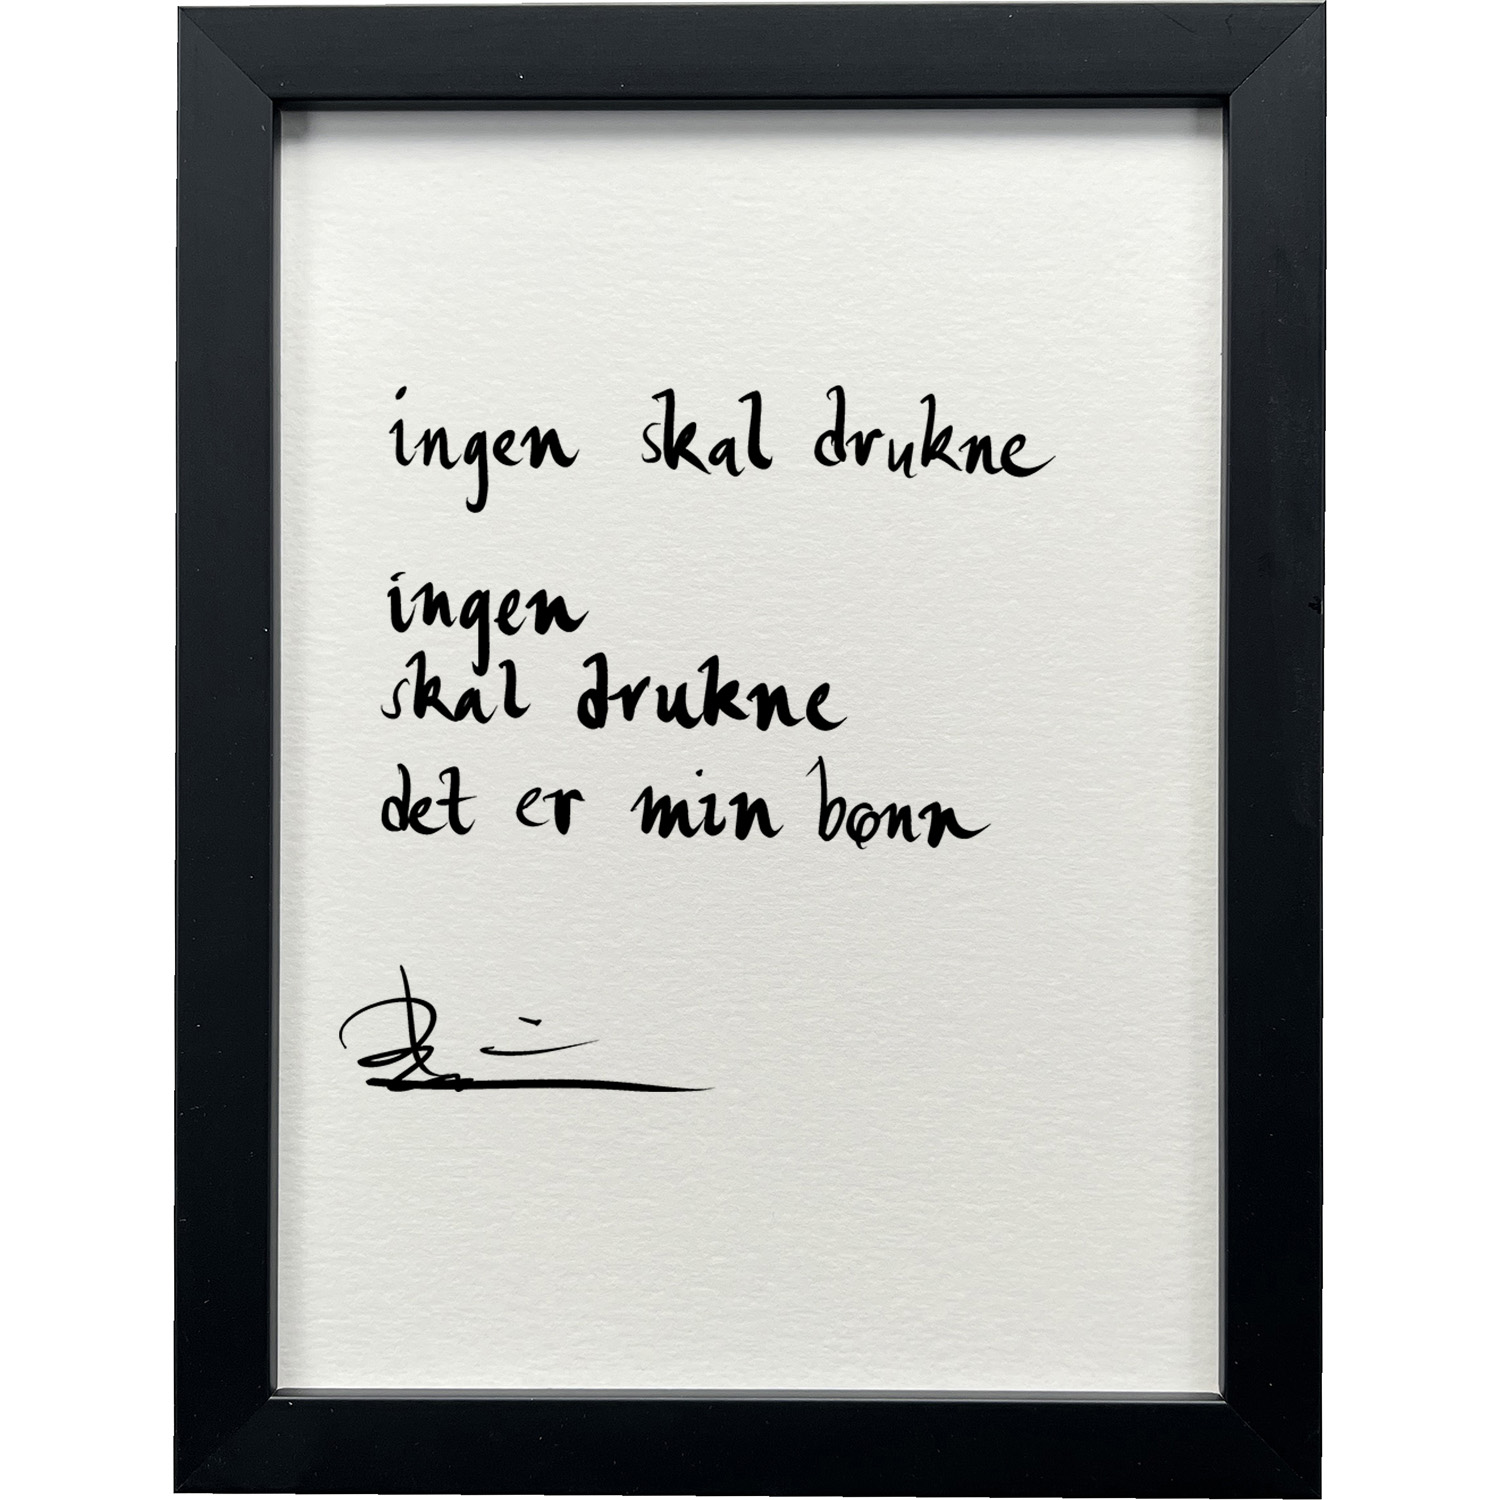 ingen skal drukne
ingen
skal drukne
det er min bønn